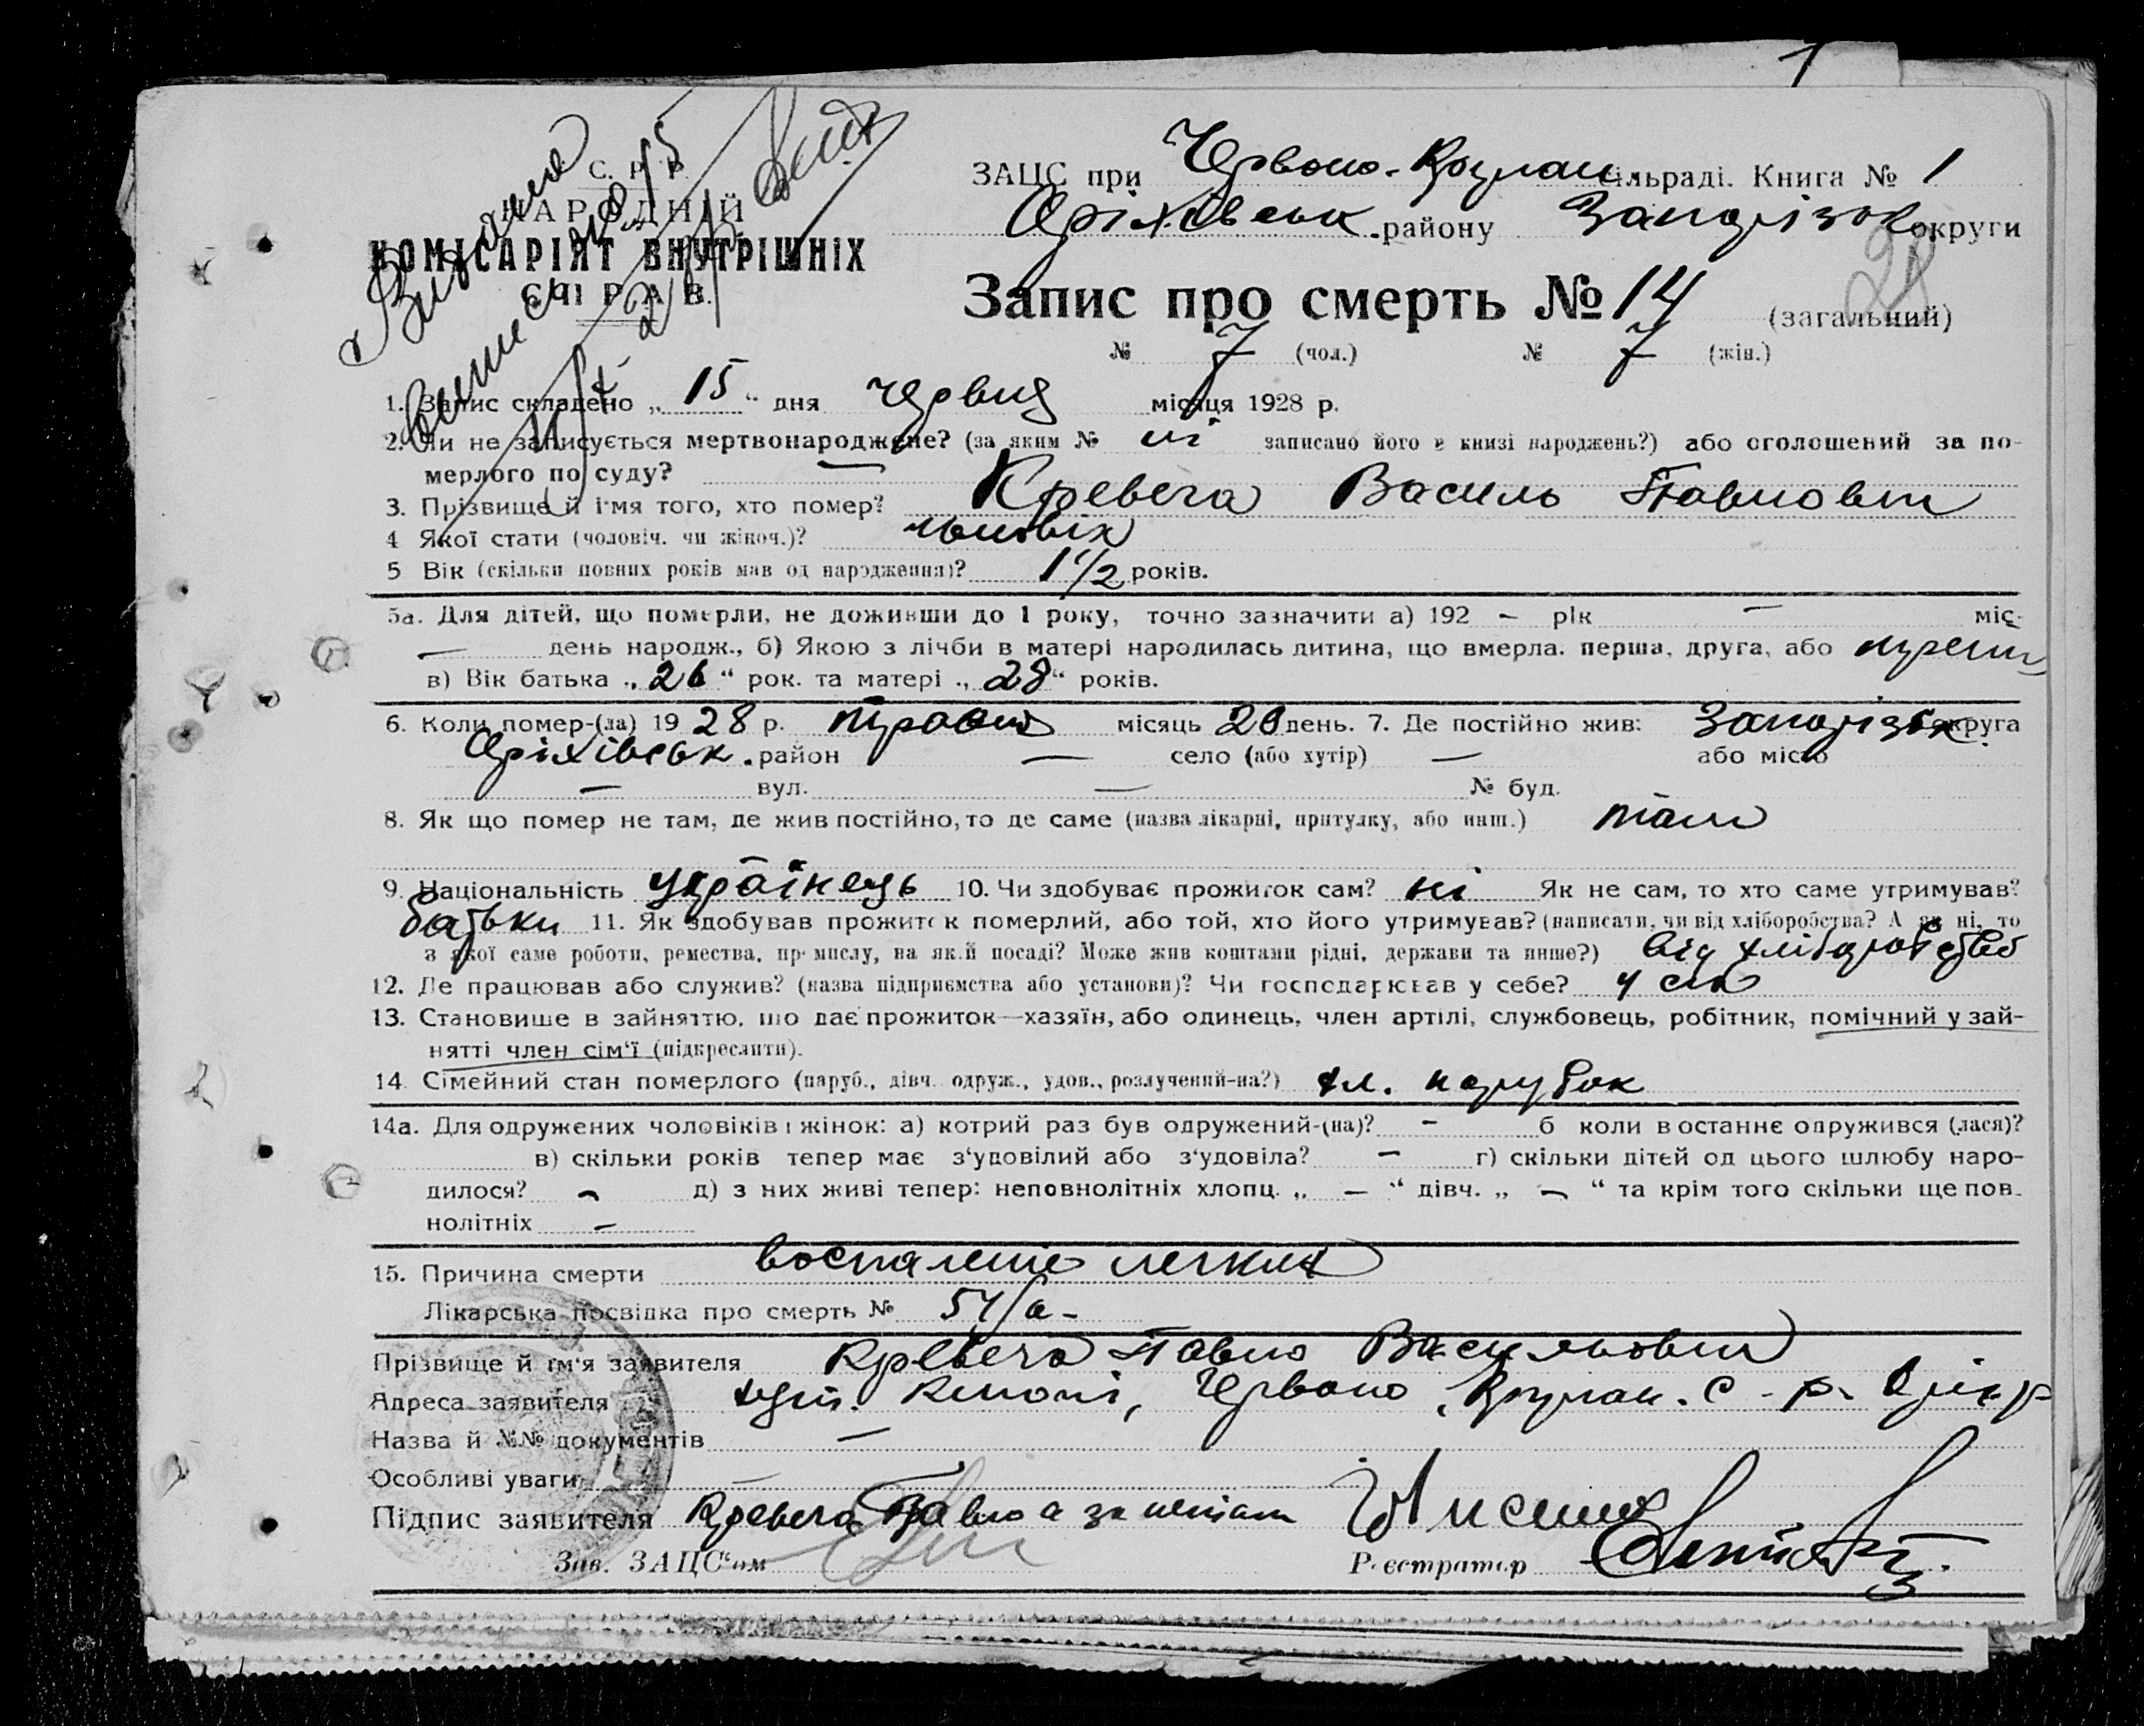 1
С. Р. Р.
НАРОДНІЙ
КОМІСАРІЯТ ВНУТРІШНІХ
СПРАВ.
ЗАЦС при Червоно- сільраді. Книга № 1
Оріхівськ. району Запорізьк округи
28
Запис про смерть № 14 (загальний)
№ 7 (чол.) № 7 (жін.)
1. Запис складено „ 15 “ дня червня місяця 1928 р.
2. Чи не записується мертвонароджене? (за яким № ні записано його в книзі народжень?) або оголошений за по-
мерлого по суду? —
3. Прізвище й ім'я того, хто помер? Кревега Василь Павлович
4 Якої стати (чоловіч. чи жіноч.)? чоловік
5 Вік (скільки повних років мав од народження)? 1 1/2 років.
5а. Для дітей, що померли, не доживши до 1 року, точно зазначити а) 192 — рік — міс.
— день народж., б) Якою з лічби в матері народилась дитина, що вмерла. перша, друга, або
в) Вік батька „ 26 “ рок. та матері „ 28 “ років.
6. Коли помер-(ла) 19 28 р. травня місяць 20 день. 7. Де постійно жив: Запорізьк округа
Оріхівськ. район — село (або хутір) — або місто
— вул. — № буд.
8. Як що помер не там, де жив постійно, то де саме (назва лікарні, притулку, або инш.) там
9. Національність українець 10. Чи здобуває прожиток сам? ні Як не сам, то хто саме утримував?
батьки 11. Як здобував прожиток померлий, або той, хто його утримував? (написати, чи від хліборобства? А як ні, то
з якої саме роботи, ремества, промислу, на якій посаді? Може жив коштами рідні, держави та инше?) від хліборобства
12. Де працював або служив? (назва підприємства або установи)? Чи господарював у себе? у себе
13. Становище в зайняттю, що дає прожиток—хазяїн, або одинець, член артілі, службовець, робітник, помічний у зай-
нятті член сім'ї (підкреслити).
14 Сімейний стан померлого (паруб., дівч. одруж., удов., розлучений-на?) хл. парубок
14а. Для одружених чоловіків і жінок: а) котрий раз був одружений-(на)? — б коли востаннє одружився (лася)?
в) скільки років тепер має з'удовілий або з'удовіла? — г) скільки дітей од цього шлюбу наро-
дилося? — д) з них живі тепер: неповнолітніх хлопц. „ — “ дівч. „ — “ та крім того скільки ще пов-
нолітніх —
15. Причина смерти воспаление легких
Лікарська посвідка про смерть № 54/а-
Прізвище й ім'я заявителя Кревега Павло Васильович
Адреса заявителя хут. Червоно с-р.
Назва й №№ документів —
Особливі уваги —
Підпис заявителя Кревега Павло а за
Зав. ЗАЦС'ом Реєстратор